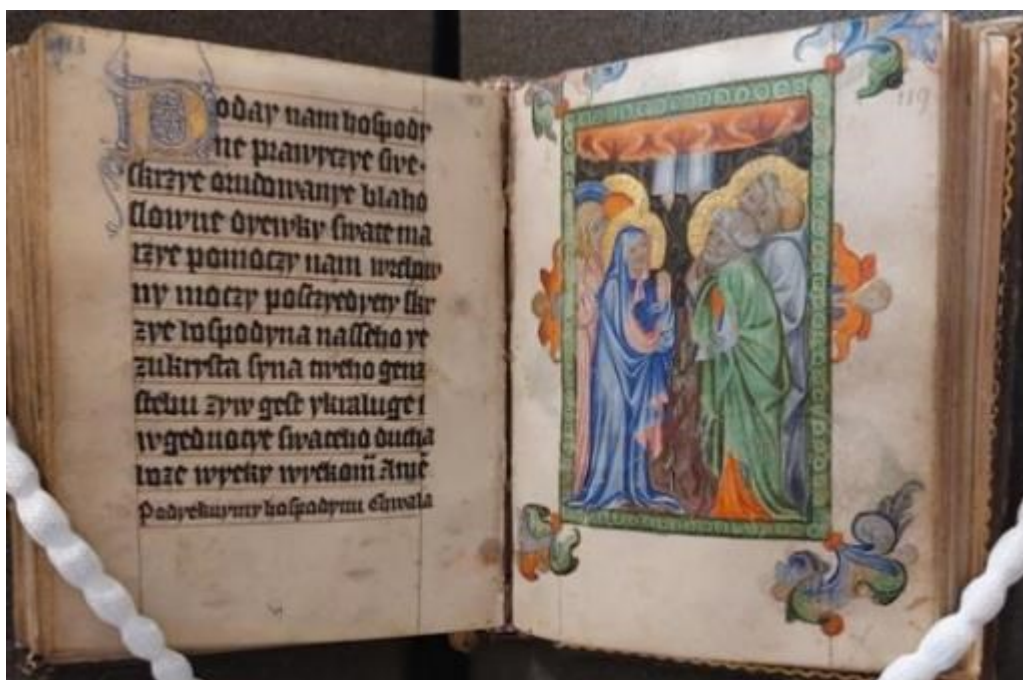 Doday nam hospody
ne prawyczye swe
skrzye orudowanye blaho
slowne dyewky swate ma
rzye pomoczy nam
ny moczy skr
zye hospodyna nasseho ye
zukrysta syna tweho genz
stebu zyw gest ykraluge i
w gednotye swateho ducha
boze wyeky wyekom̅ Ame̅
Podyekuymy hospodynu Chwala
119